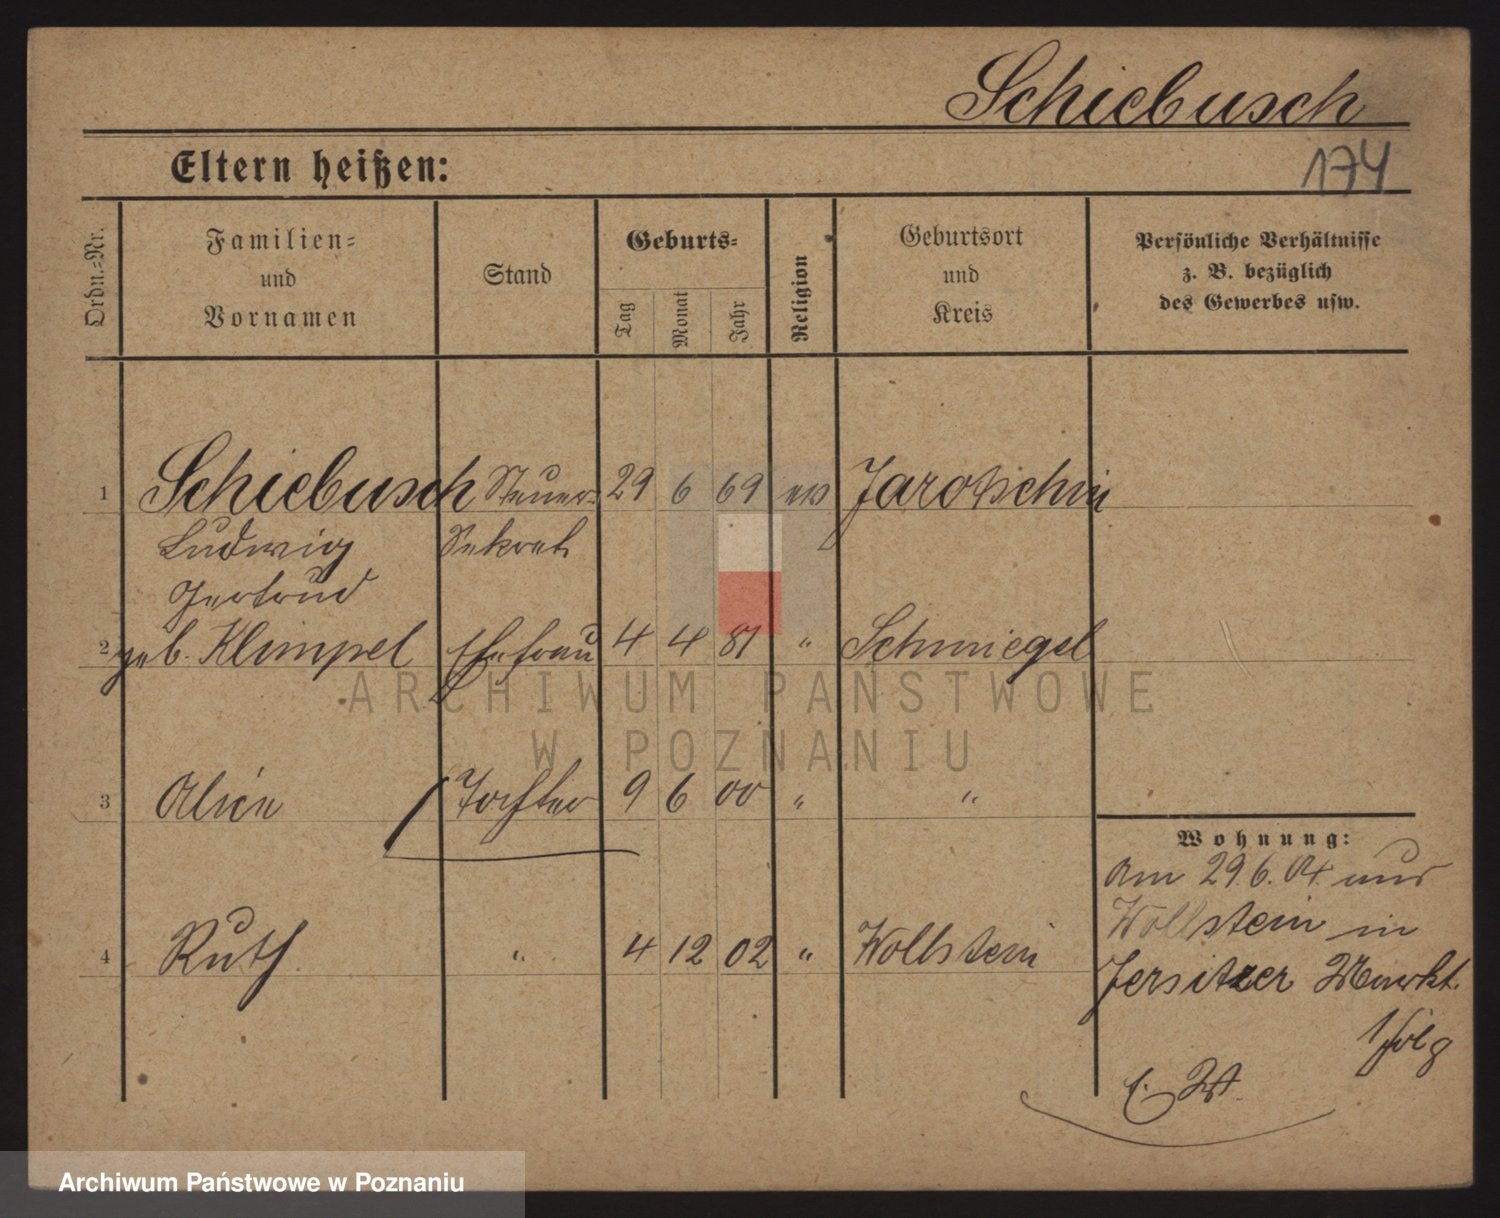 Schiebusch
Eltern heißen:
174
Ordn.=Nr.
Familien=
und
Vornamen
Stand
Geburts=
Tag
Monat
Jahr
Religion
Geburtsort
und
Kreis
Persönliche Verhältnisse
z. B. bezüglich
des Gewerbes usw.
1 Schiebusch Steuer- 29 6 69 Jarotschin
Ludwig Sekret
Gertrud
2 geb. Klimpel Ehefrau 4 4 81 " Schmiegel
ARCHIWUM PAŃSTWOWE
W POZNANIU
3 Alice Tochter 9 6 00 " "
Wohnung:
Am 29.6.04. aus
Wollstein in
4 Ruth " 4 12 02 " Wollstein
Jersitzer Markt.
Archiwum Państwowe w Poznaniu